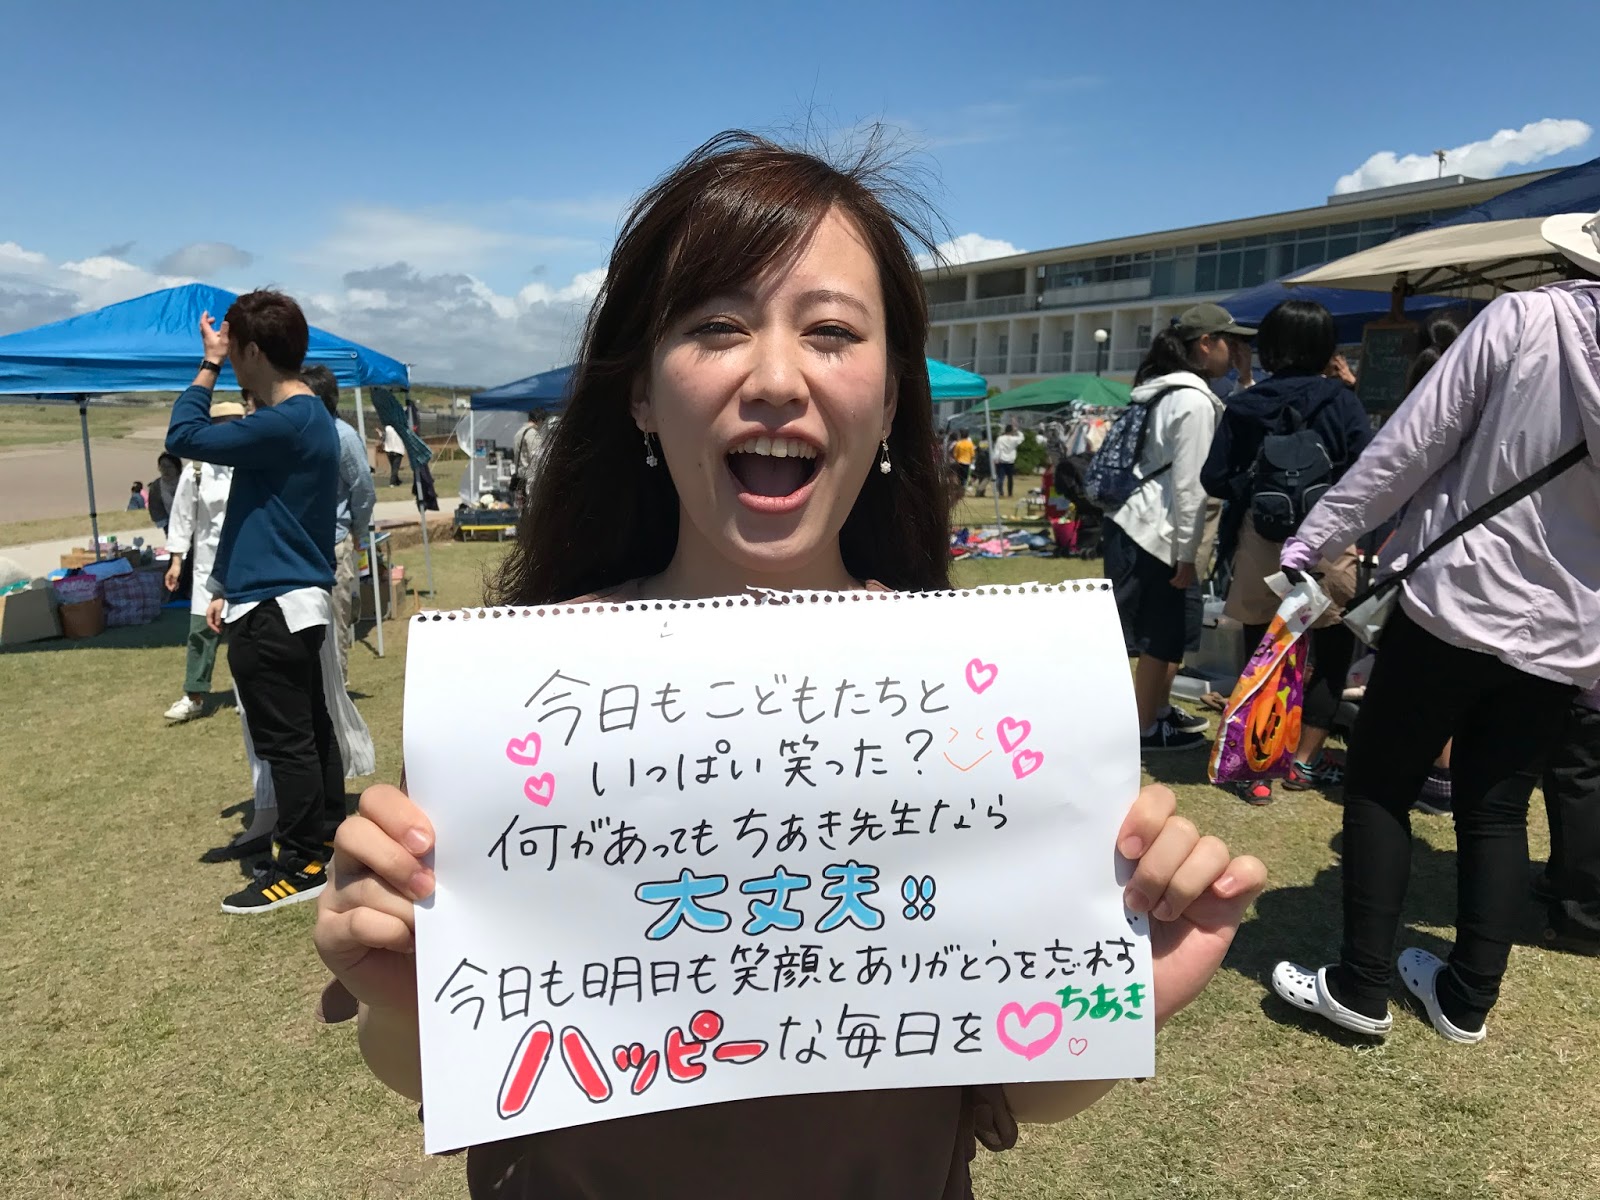 今日もこどもたちと
いっぱい笑った?
何があってもちあき先生なら
大丈夫!!
今日も明日も笑顔とありがとうを忘れず
ハッピーな毎日を
ちあき